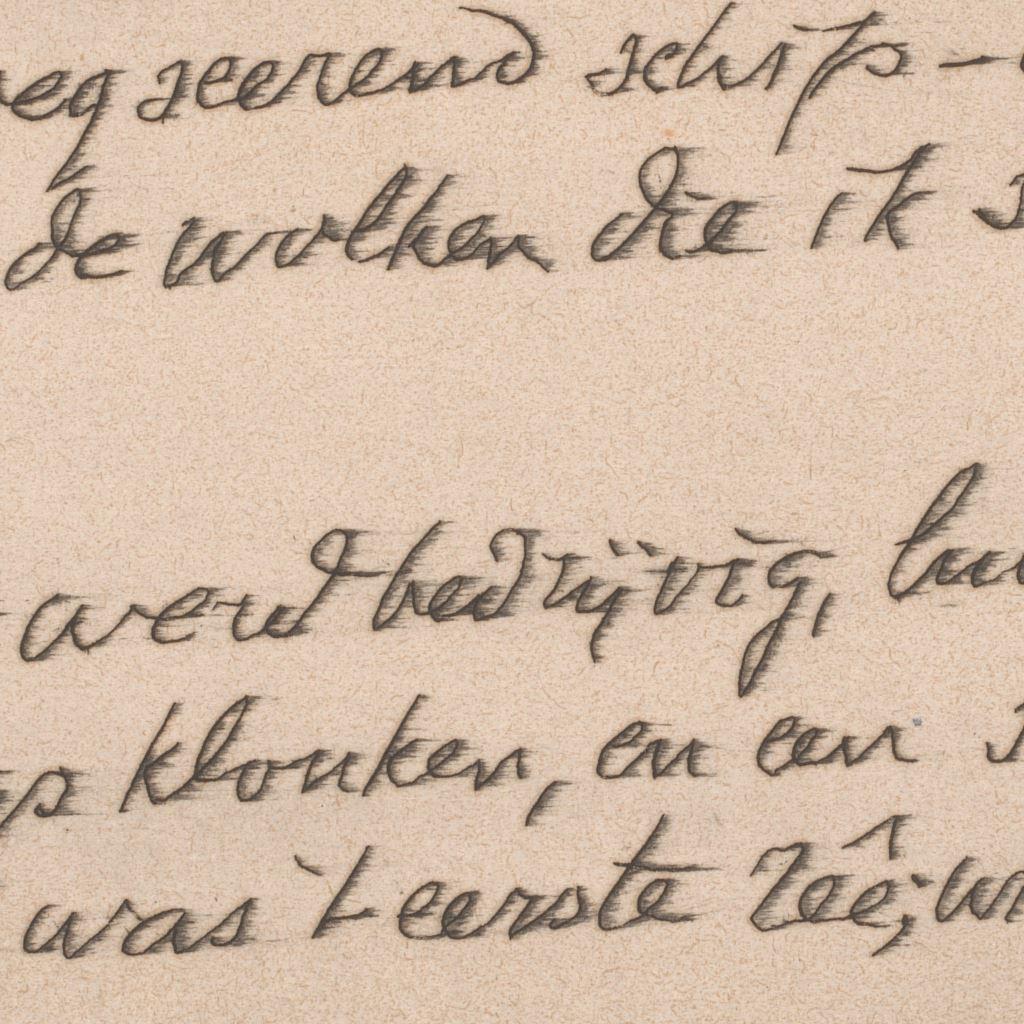 seerend schip -
de wolken die ik
werd bedrijvig,
klonken, en een
was 't eerste zeê;